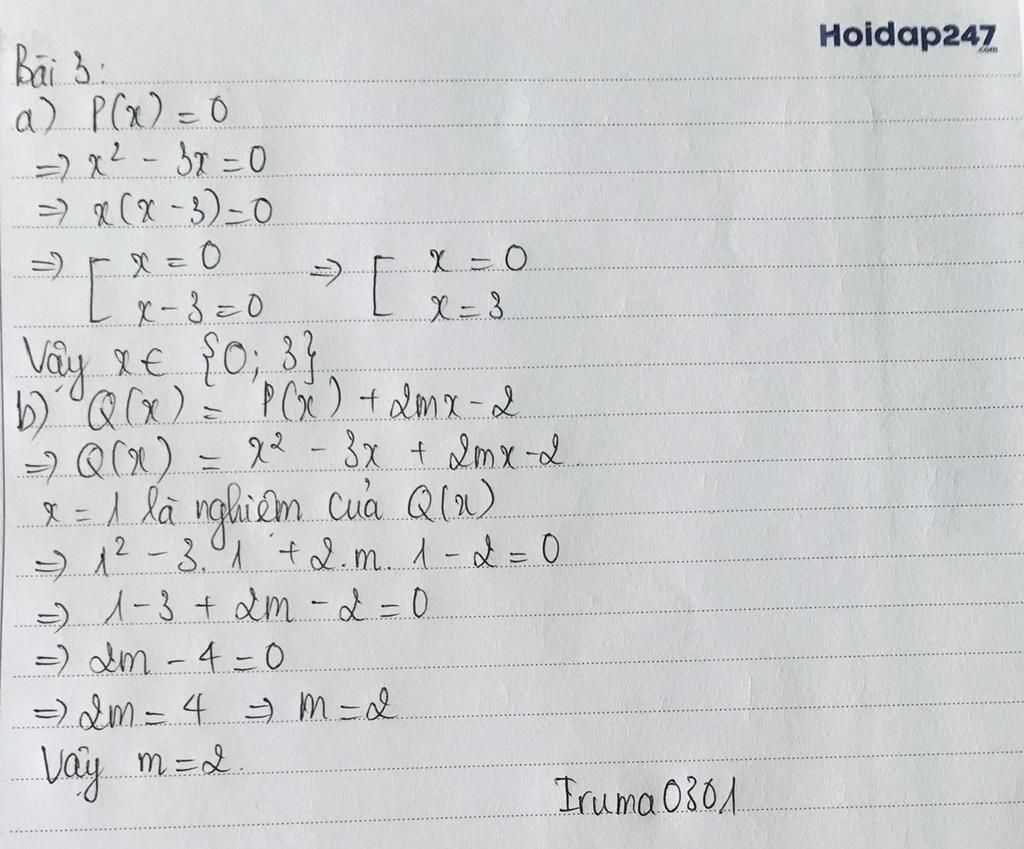 Hoidap247
.com
Bài 3:
a) P(x) = 0
=> x² - 3x = 0
=> x(x - 3) = 0
=> [ x = 0 => [ x = 0
x - 3 = 0 x = 3
Vậy x ∈ {0; 3}
b) Q(x) = P(x) + 2mx - 2
=> Q(x) = x² - 3x + 2mx - 2
x = 1 là nghiệm của Q(x)
=> 1² - 3. 1 + 2. m. 1 - 2 = 0
=> 1 - 3 + 2m - 2 = 0
=> 2m - 4 = 0
=> 2m = 4 => m = 2
Vậy m = 2.
Iruma0301